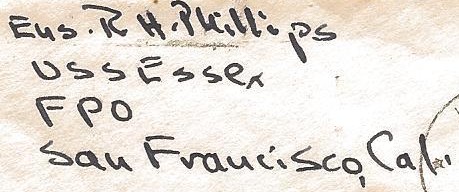 Ens. R H. Phillips
USS Essex
FPO
San Francisco, Cal.